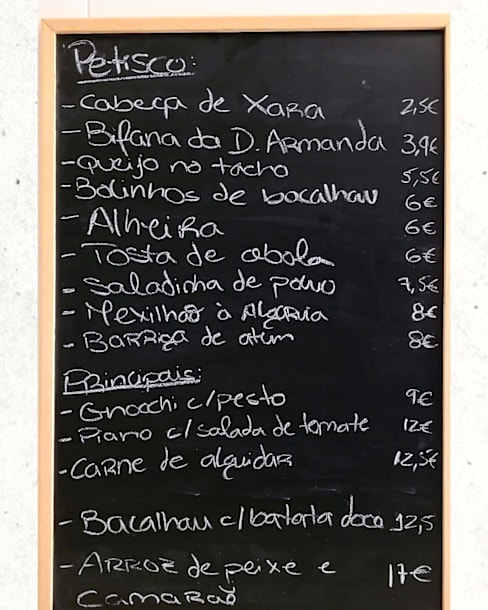 Petisco:
- Cabeça de Xara 2,5€
- Bifana da D. Armanda 3,9€
- Queijo no tacho 5,5€
- Bolinhos de bacalhau 6€
- Alheira 6€
- Tosta de cebola 6€
- Saladinha de polvo 7,5€
- Mexilhão à Algarvia 8€
- Barriga de atum 8€
Principais:
- Gnocchi c/pesto 9€
- Piano c/salada de tomate 12€
- Carne de alguidar 12,5€
- Bacalhau c/batata doce 12,5
- Arroz de peixe e 17€
Camarão